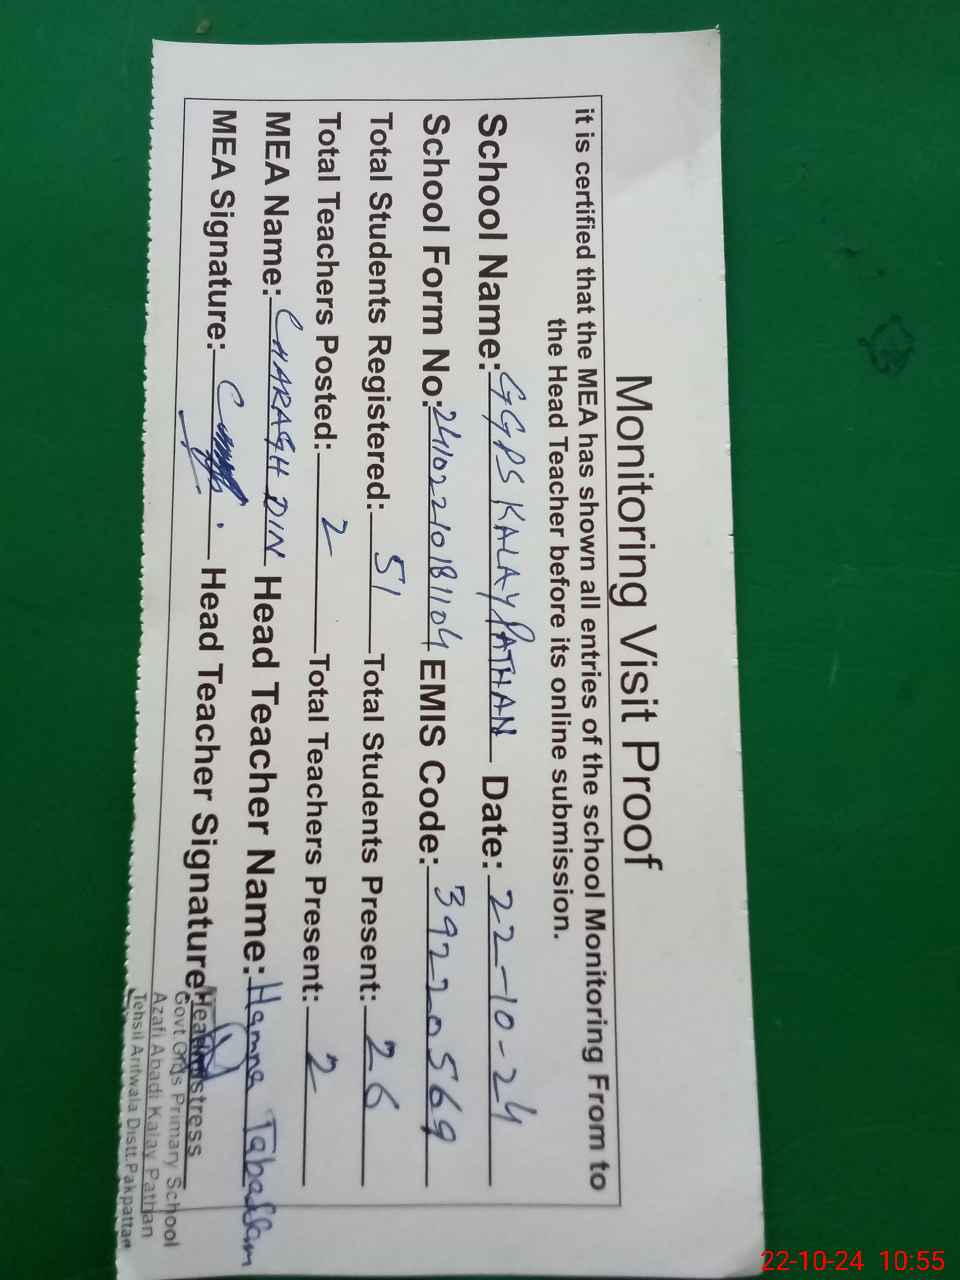 Monitoring Visit Proof
it is certified that the MEA has shown all entries of the school Monitoring From to
the Head Teacher before its online submission.
School Name: GGPS KALAY PATHAN Date: 22-10-24
School Form No: 24102210181104 EMIS Code: 39220569
Total Students Registered: 51 Total Students Present: 26
Total Teachers Posted: 2 Total Teachers Present: 2
MEA Name: CHARAGH DIN Head Teacher Name: Hamna Tabassam
MEA Signature: Head Teacher Signature:
Headmistress
Govt Girls Primary School
Azafi Abadi Kalay Pathan
Tehsil Arifwala Distt.Pakpattan
22-10-24 10:55